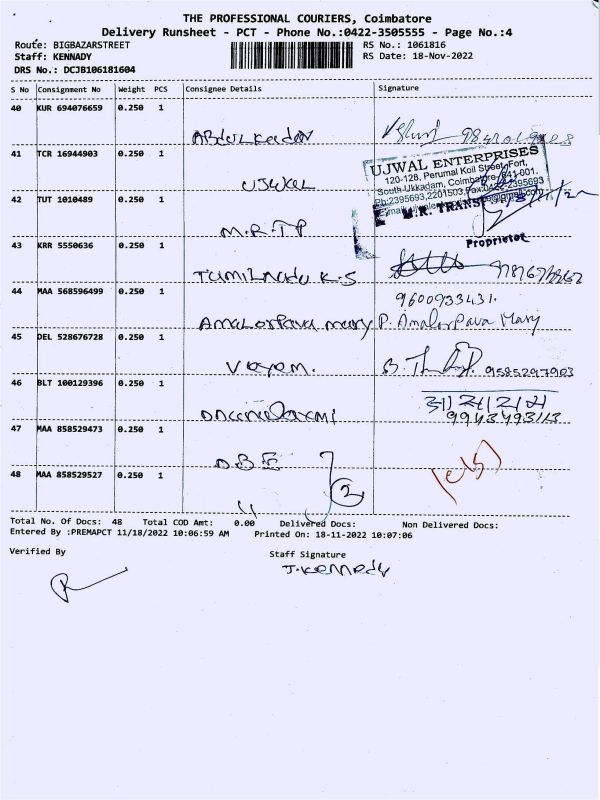 THE PROFESSIONAL COURIERS, Coimbatore
Delivery Runsheet - PCT - Phone No.:0422-3505555 - Page No.:4
Route: BIGBAZARSTREET RS No.: 1061816
Staff: KENNADY RS Date: 18-Nov-2022
DRS No.: DCJB106181604
S No Consignment No Weight PCS Consignee Details Signature
40 KUR 694076659 0.250 1
Abdulkadar
41 TCR 16944903 0.250 1
UJWAL ENTERPRISES
120-128, Perumal Koil Street, Fort,
South Ukkadam, Coimbatore-641-001.
Ph:2395693,2201503,Fax:0422-2395693
UJWAL
42 TUT 1010489 0.250 1
M.R. TRANS
M.R.TP
Proprietor
43 KRR 5550636 0.250 1
Tamilnadu K.S
44 MAA 568596499 0.250 1
9600933431.
Amalorpava mary P. Amalorpava Mary
45 DEL 528676728 0.250 1
9585297903
46 BLT 100129396 0.250 1
9943493113
47 MAA 858529473 0.250 1
DBE
48 MAA 858529527 0.250 1
2
Total No. Of Docs: 48 Total COD Amt: 0.00 Delivered Docs: Non Delivered Docs:
Entered By :PREMAPCT 11/18/2022 10:06:59 AM Printed On: 18-11-2022 10:07:06
Verified By Staff Signature
J.Kennedy